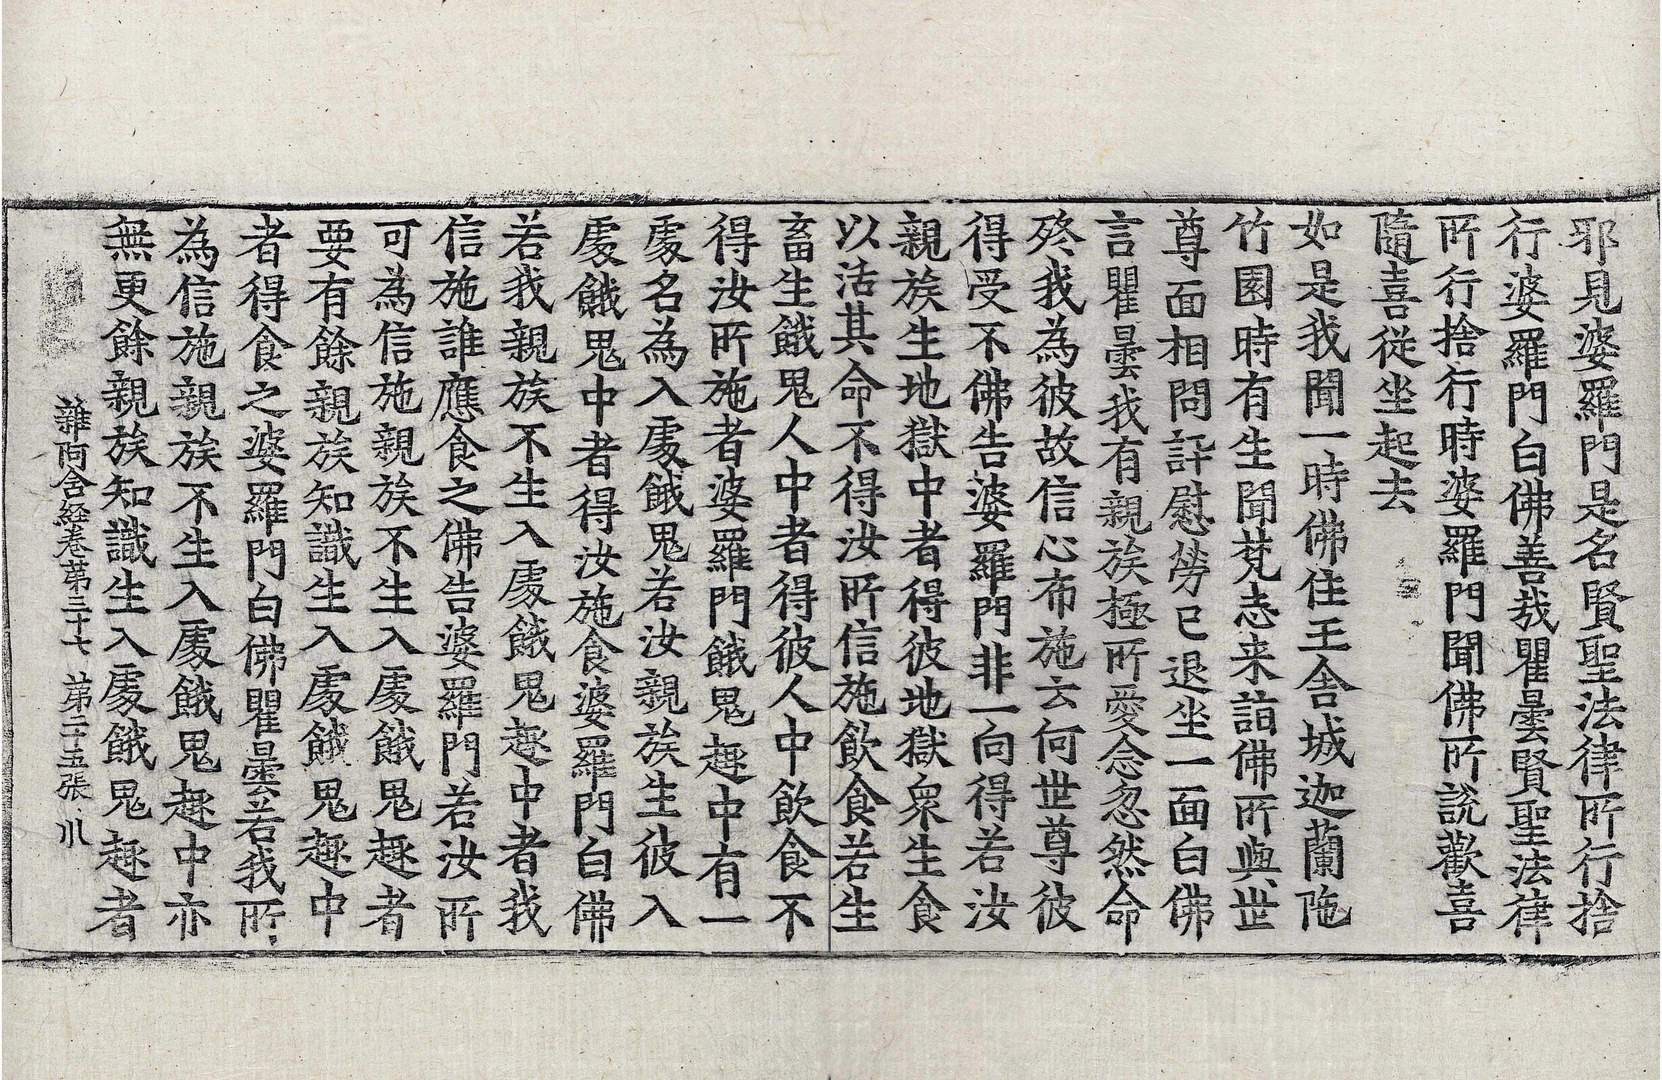 邪見婆羅門是名賢聖法律所行捨
行婆羅門白佛善哉瞿曇賢聖法律
所行捨行時婆羅門聞佛所說歡喜
隨喜從坐起去
如是我聞一時佛住王舍城迦蘭陁
竹園時有生聞梵志来詣佛所與世
尊面相問訊慰勞已退坐一面白佛
言瞿曇我有親族極所愛念忽然命
終我為彼故信心布施云何世尊彼
得受不佛告婆羅門非一向得若汝
親族生地獄中者得彼地獄衆生食
以活其命不得汝所信施飲食若生
畜生餓鬼人中者得彼人中飲食不
得汝所施者婆羅門餓鬼趣中有一
處名為入處餓鬼若汝親族生彼入
處餓鬼中者得汝施食婆羅門白佛
若我親族不生入處餓鬼趣中者我
信施誰應食之佛告婆羅門若汝所
可為信施親族不生入處餓鬼趣者
要有餘親族知識生入處餓鬼趣中
者得食之婆羅門白佛瞿曇若我所
為信施親族不生入處餓鬼趣中亦
無更餘親族知識生入處餓鬼趣者
雜阿含経卷第三十七 第二十五張